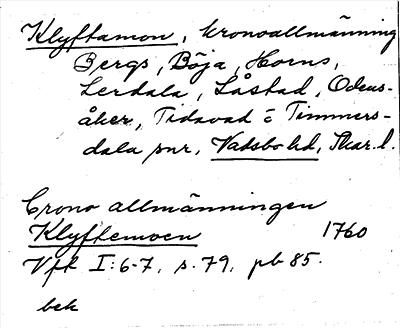 Klyftamon, kronoallmänning
Bergs, Böja, Horns,
Lerdala, Låstad, Odens-
åker, Tidavad o Timmers-
dala snr, Vadsbo hd, Skar. l.
Crono allmänningen
Klyftemoen 1760
Vfk I:6-7, s. 79, pb 85.
bek